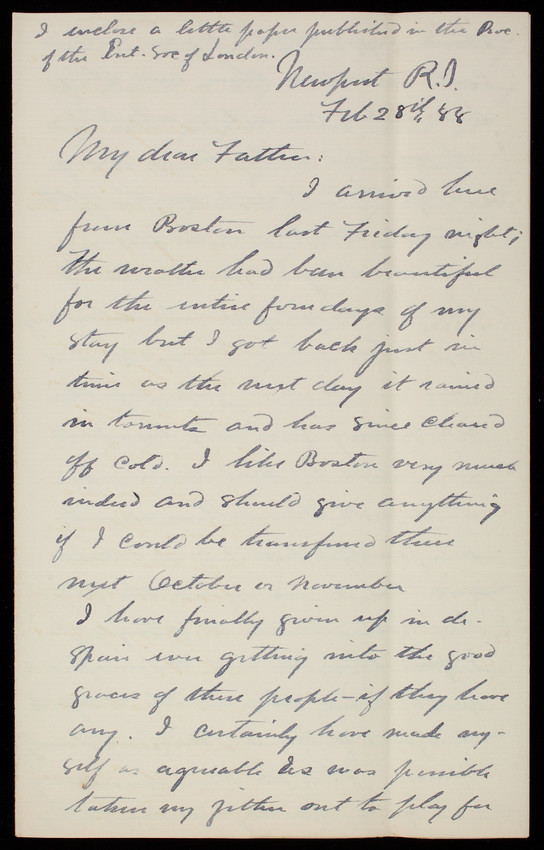 I enclose a little paper published in the Proc.
of the Ent. Soc of London.
Newport R.I.
Feb 28th, 88
My dear Father:
I arrived here
from Boston last Friday night;
the weather had been beautiful
for the entire four days of my
stay but I got back just in
time as the next day it rained
in torrents and has since cleared
off cold. I like Boston very much
indeed and should give anything
if I could be transferred there
next October or November
I have finally given up in de-
spair ever getting into the good
graces of these people - if they have
any. I certainly have made my-
self as agreeable as was possible
taken my zither out to play for